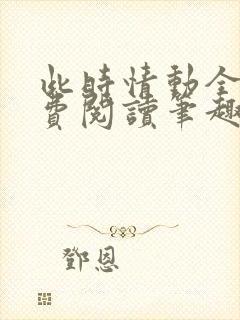 此時情動全
費閱讀筆趣
鄧恩